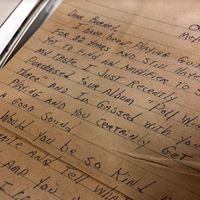 Dear
I have been playing guit
for 22 years and still have
yet to find an amplifier to s
my taste. I just recently
purchased your album "Poll W
There and im gassed with you
playing and you certainly get
a good sound
Would you be so kind
and tell what
and you